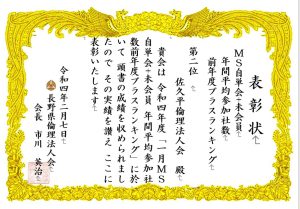 表彰状
MS自単会+本会員
年間平均参加社数
前年度プラスランキング
第二位
佐久平倫理法人会 殿
貴会は 令和四年度「一月MS
自単会+本会員 年間平均参加社
数前年度プラスランキング」に於
いて 頭書の成績を収められまし
たので その実績を讃え ここに
表彰いたします
令和四年二月七日
長野県倫理法人会
会長 市川 英治